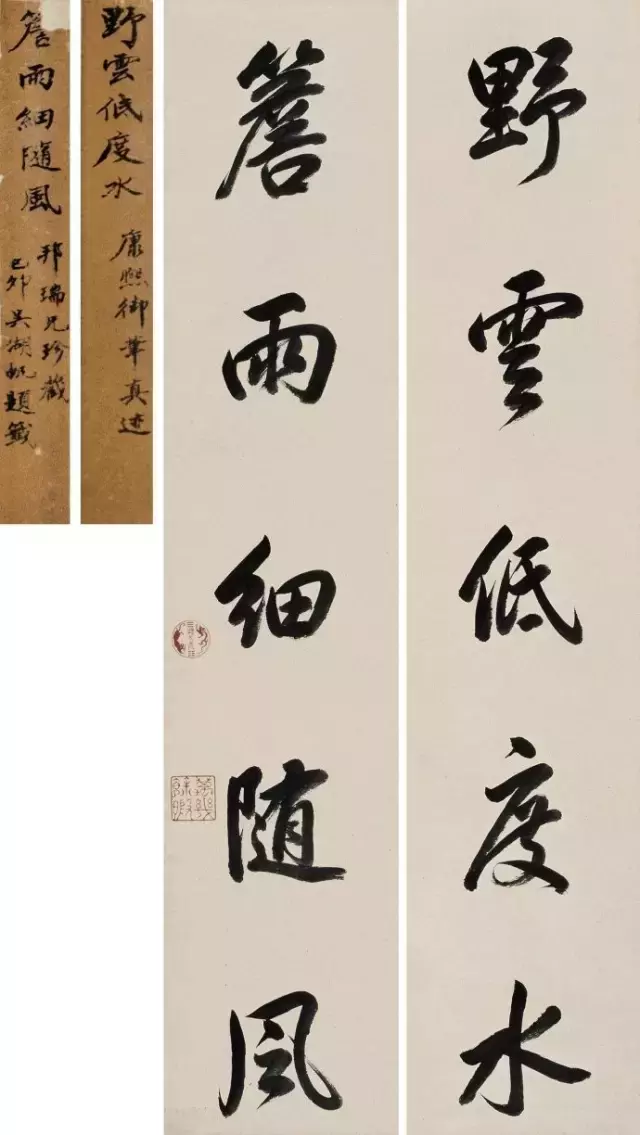 野雲低度水
簷雨細随風
萬幾餘暇
野雲低度水
康熙御筆真迹
簷雨細隨風
邦瑞兄珍藏
己卯吴湖帆題籤